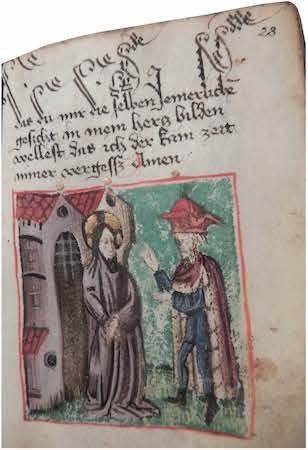 28
das du mir die selben Jemerlichē
gesicht in mein hertz bilden
wellest das ich der kain zeit
nimer vergessz Amen